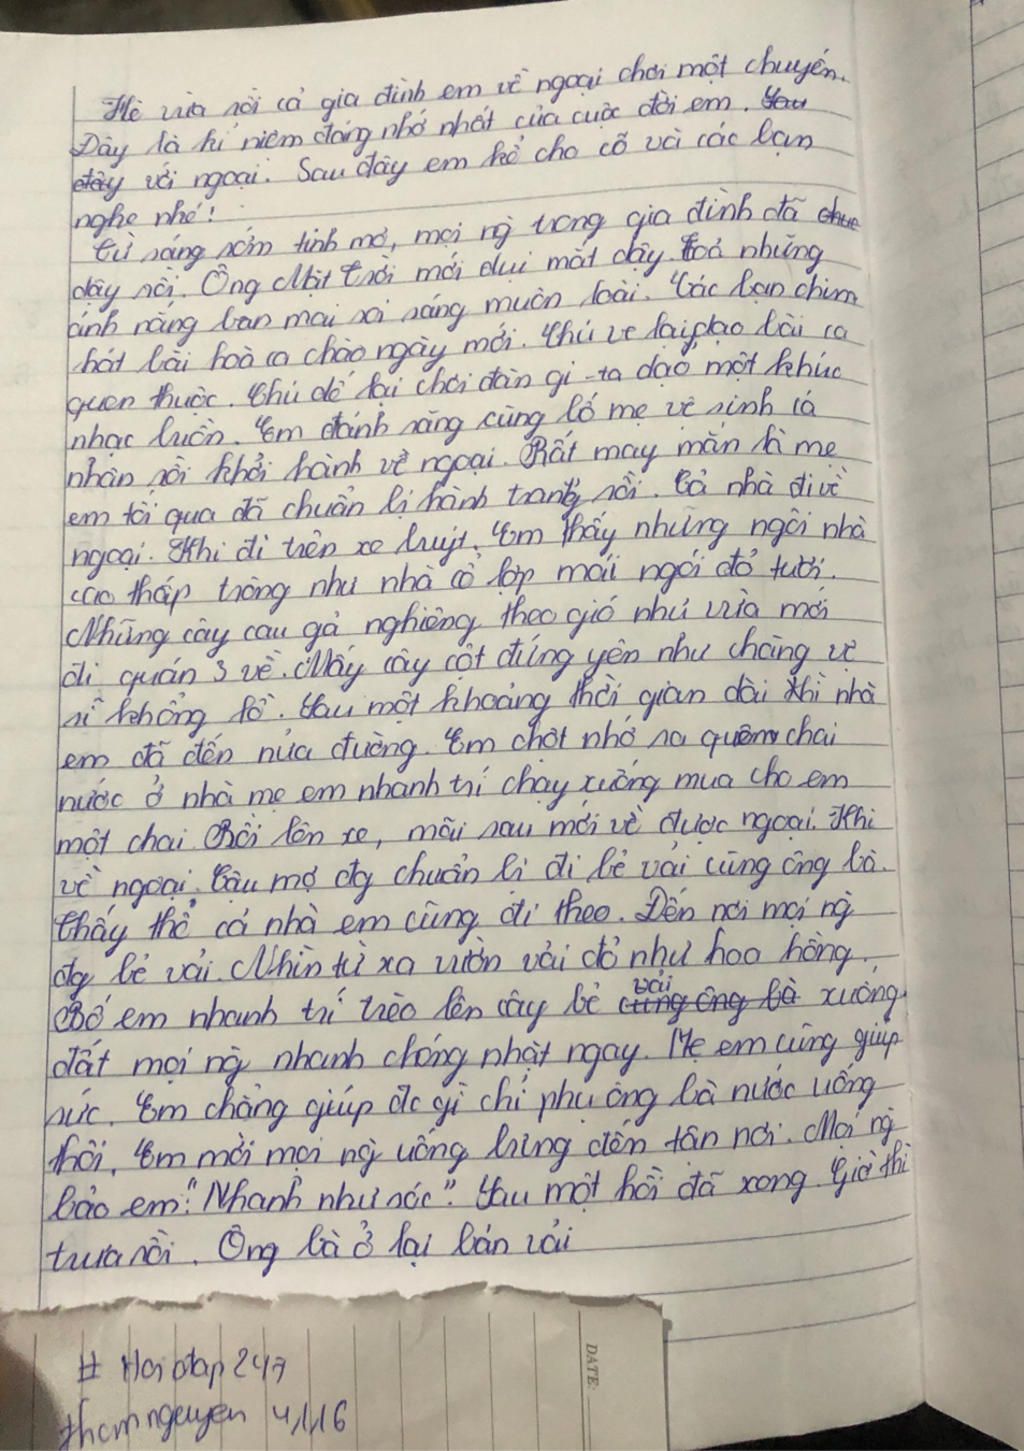 Hè vừa rồi cả gia đình em về ngoại chơi một chuyến.
Đây là kỉ niệm đáng nhớ nhất của cuộc đời em. Sau
đây với ngoại. Sau đây em kể cho cô và các bạn
nghe nhé!
Từ sáng sớm tinh mơ, mọi ng` trong gia đình đã
dậy rồi. Ông Mặt Trời mới dụi mắt dậy toả những
ánh nắng ban mai soi sáng muôn loài. Các bạn chim
hát bài hoà ca chào ngày mới. Chú ve lại dạo bài ca
quen thuộc. Chú dế lại chơi đàn gi-ta dạo một khúc
nhạc buồn. Em đánh răng cùng bố mẹ vệ sinh cá
nhân rồi khởi hành về ngoại. Rất may mắn là mẹ
em tối qua đã chuẩn bị hành trang rồi. Cả nhà đi về
ngoại. Khi đi trên xe buýt. Em thấy những ngôi nhà
cao thấp trông như nhà cổ lợp mái ngói đỏ tươi.
Những cây cau gả nghiêng theo gió như vừa mới
đi quán 3 về. Mấy cây cột đứng yên như chàng vệ
sĩ khổng lồ. Sau một khoảng thời gian dài thì nhà
em đã đến nửa đường. Em chợt nhớ ra quên chai
nước ở nhà mẹ em nhanh trí chạy xuống mua cho em
một chai. Rồi lên xe, mãi sau mới về được ngoại. Khi
về ngoại, Cậu mợ đg chuẩn bị đi bẻ vải cùng ông bà.
Thấy thế, cả nhà em cùng đi theo. Đến nơi mọi ng`
đg bẻ vải. Nhìn từ xa vườn vải đỏ như hoa hồng.
Bố em nhanh trí trèo lên cây bẻ cùng ông bà vải xuống
đất mọi ng` nhanh chóng nhặt ngay. Mẹ em cũng giúp
sức. Em chẳng giúp đc gì chỉ phụ ông bà nước uống
thôi. Em mời mọi ng` uống bưng đến tận nơi. Mọi ng`
bảo em: "Nhanh như sóc". Sau một hồi đã xong. Giờ thì
trưa rồi. Ông bà ở lại bán vải
DATE:
# Hoi đap 247
thomnguyen 4116